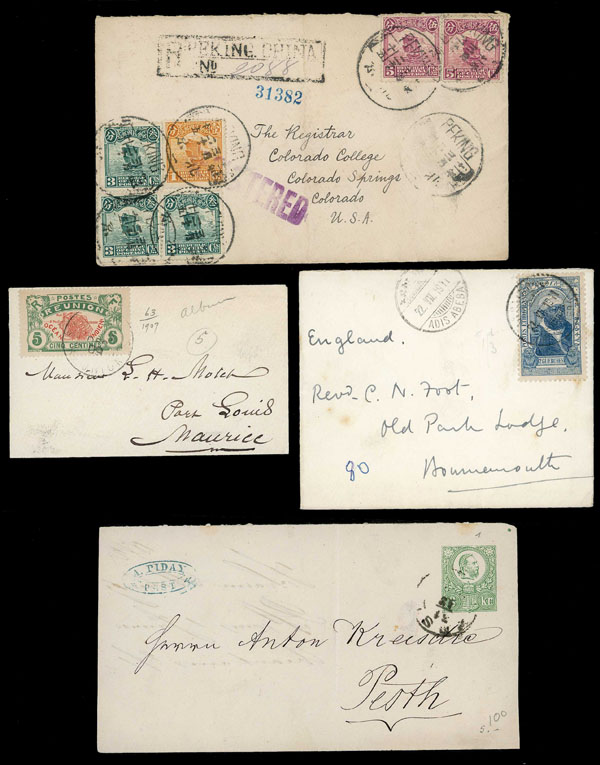 R PEKING CHINA
No 2088
31382
PEKING
PEKING
3
3
3
5
5
The Registrar
Colorado College
Colorado Springs
Colorado
U.S.A.
POSTES
REUNION
5
5
CINQ CENTIMES
63
1907
album
5
L. H. Motet
Port Louis
Maurice
ADIS ABEBA
England.
Revd. C. N. Foot,
Old Park Lodge,
Bournemouth
90
A. PIDAY
PEST
KR
Herrn Anton
Pesth
5.100